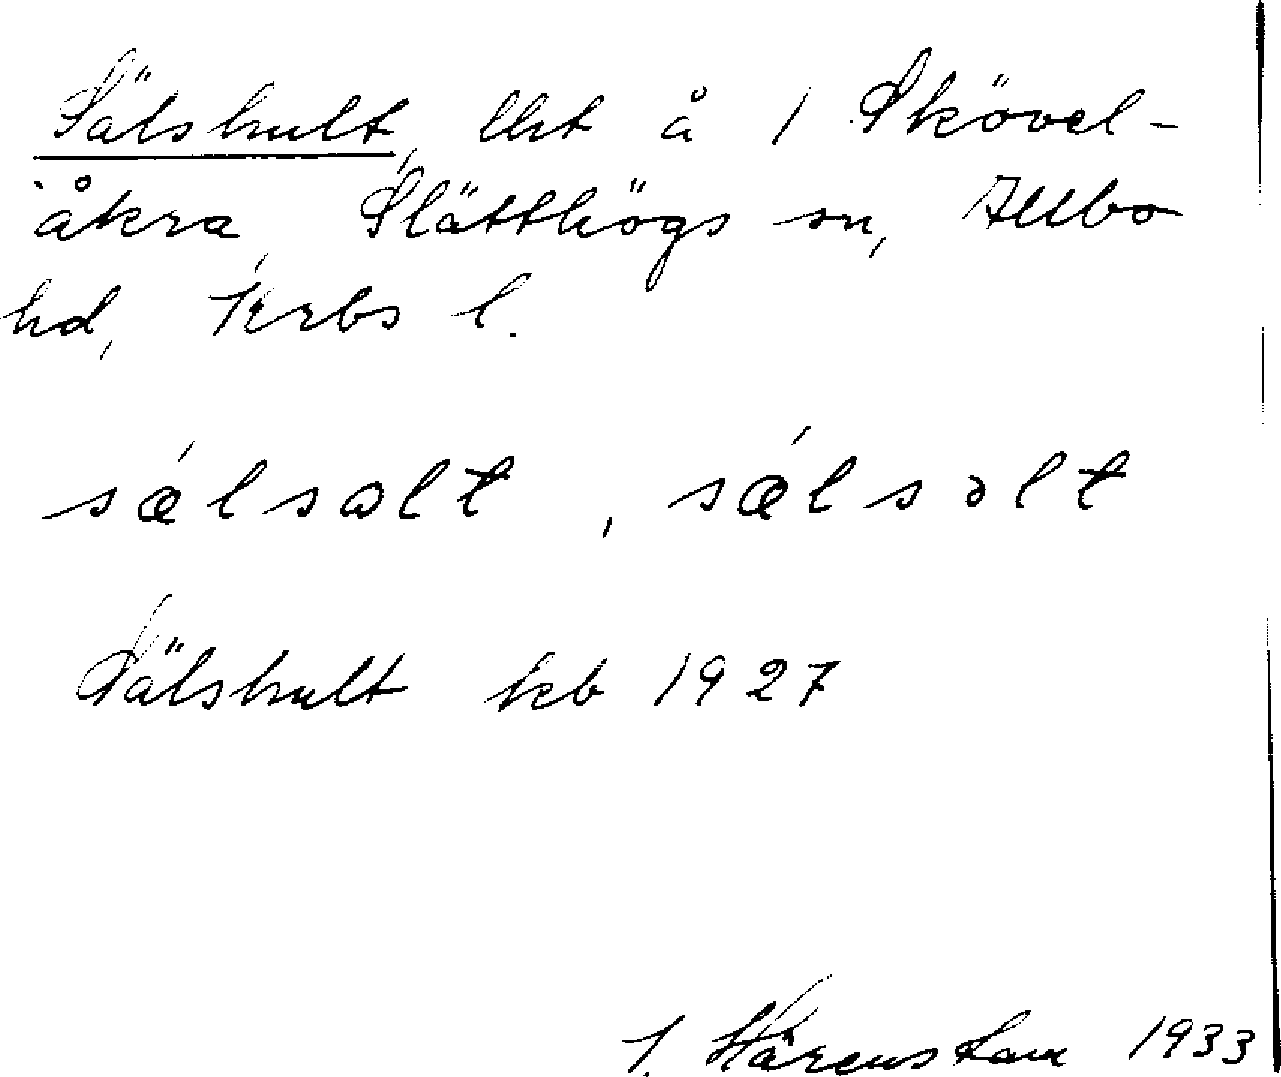 Sälshult, lht å 1 Skövel-
åkra, Slätthögs sn, Allbo
hd, Krbs l.
sǽlsɷlt, sǽlsɔlt
Sälshult kb 1927
I. Härenstam 1933